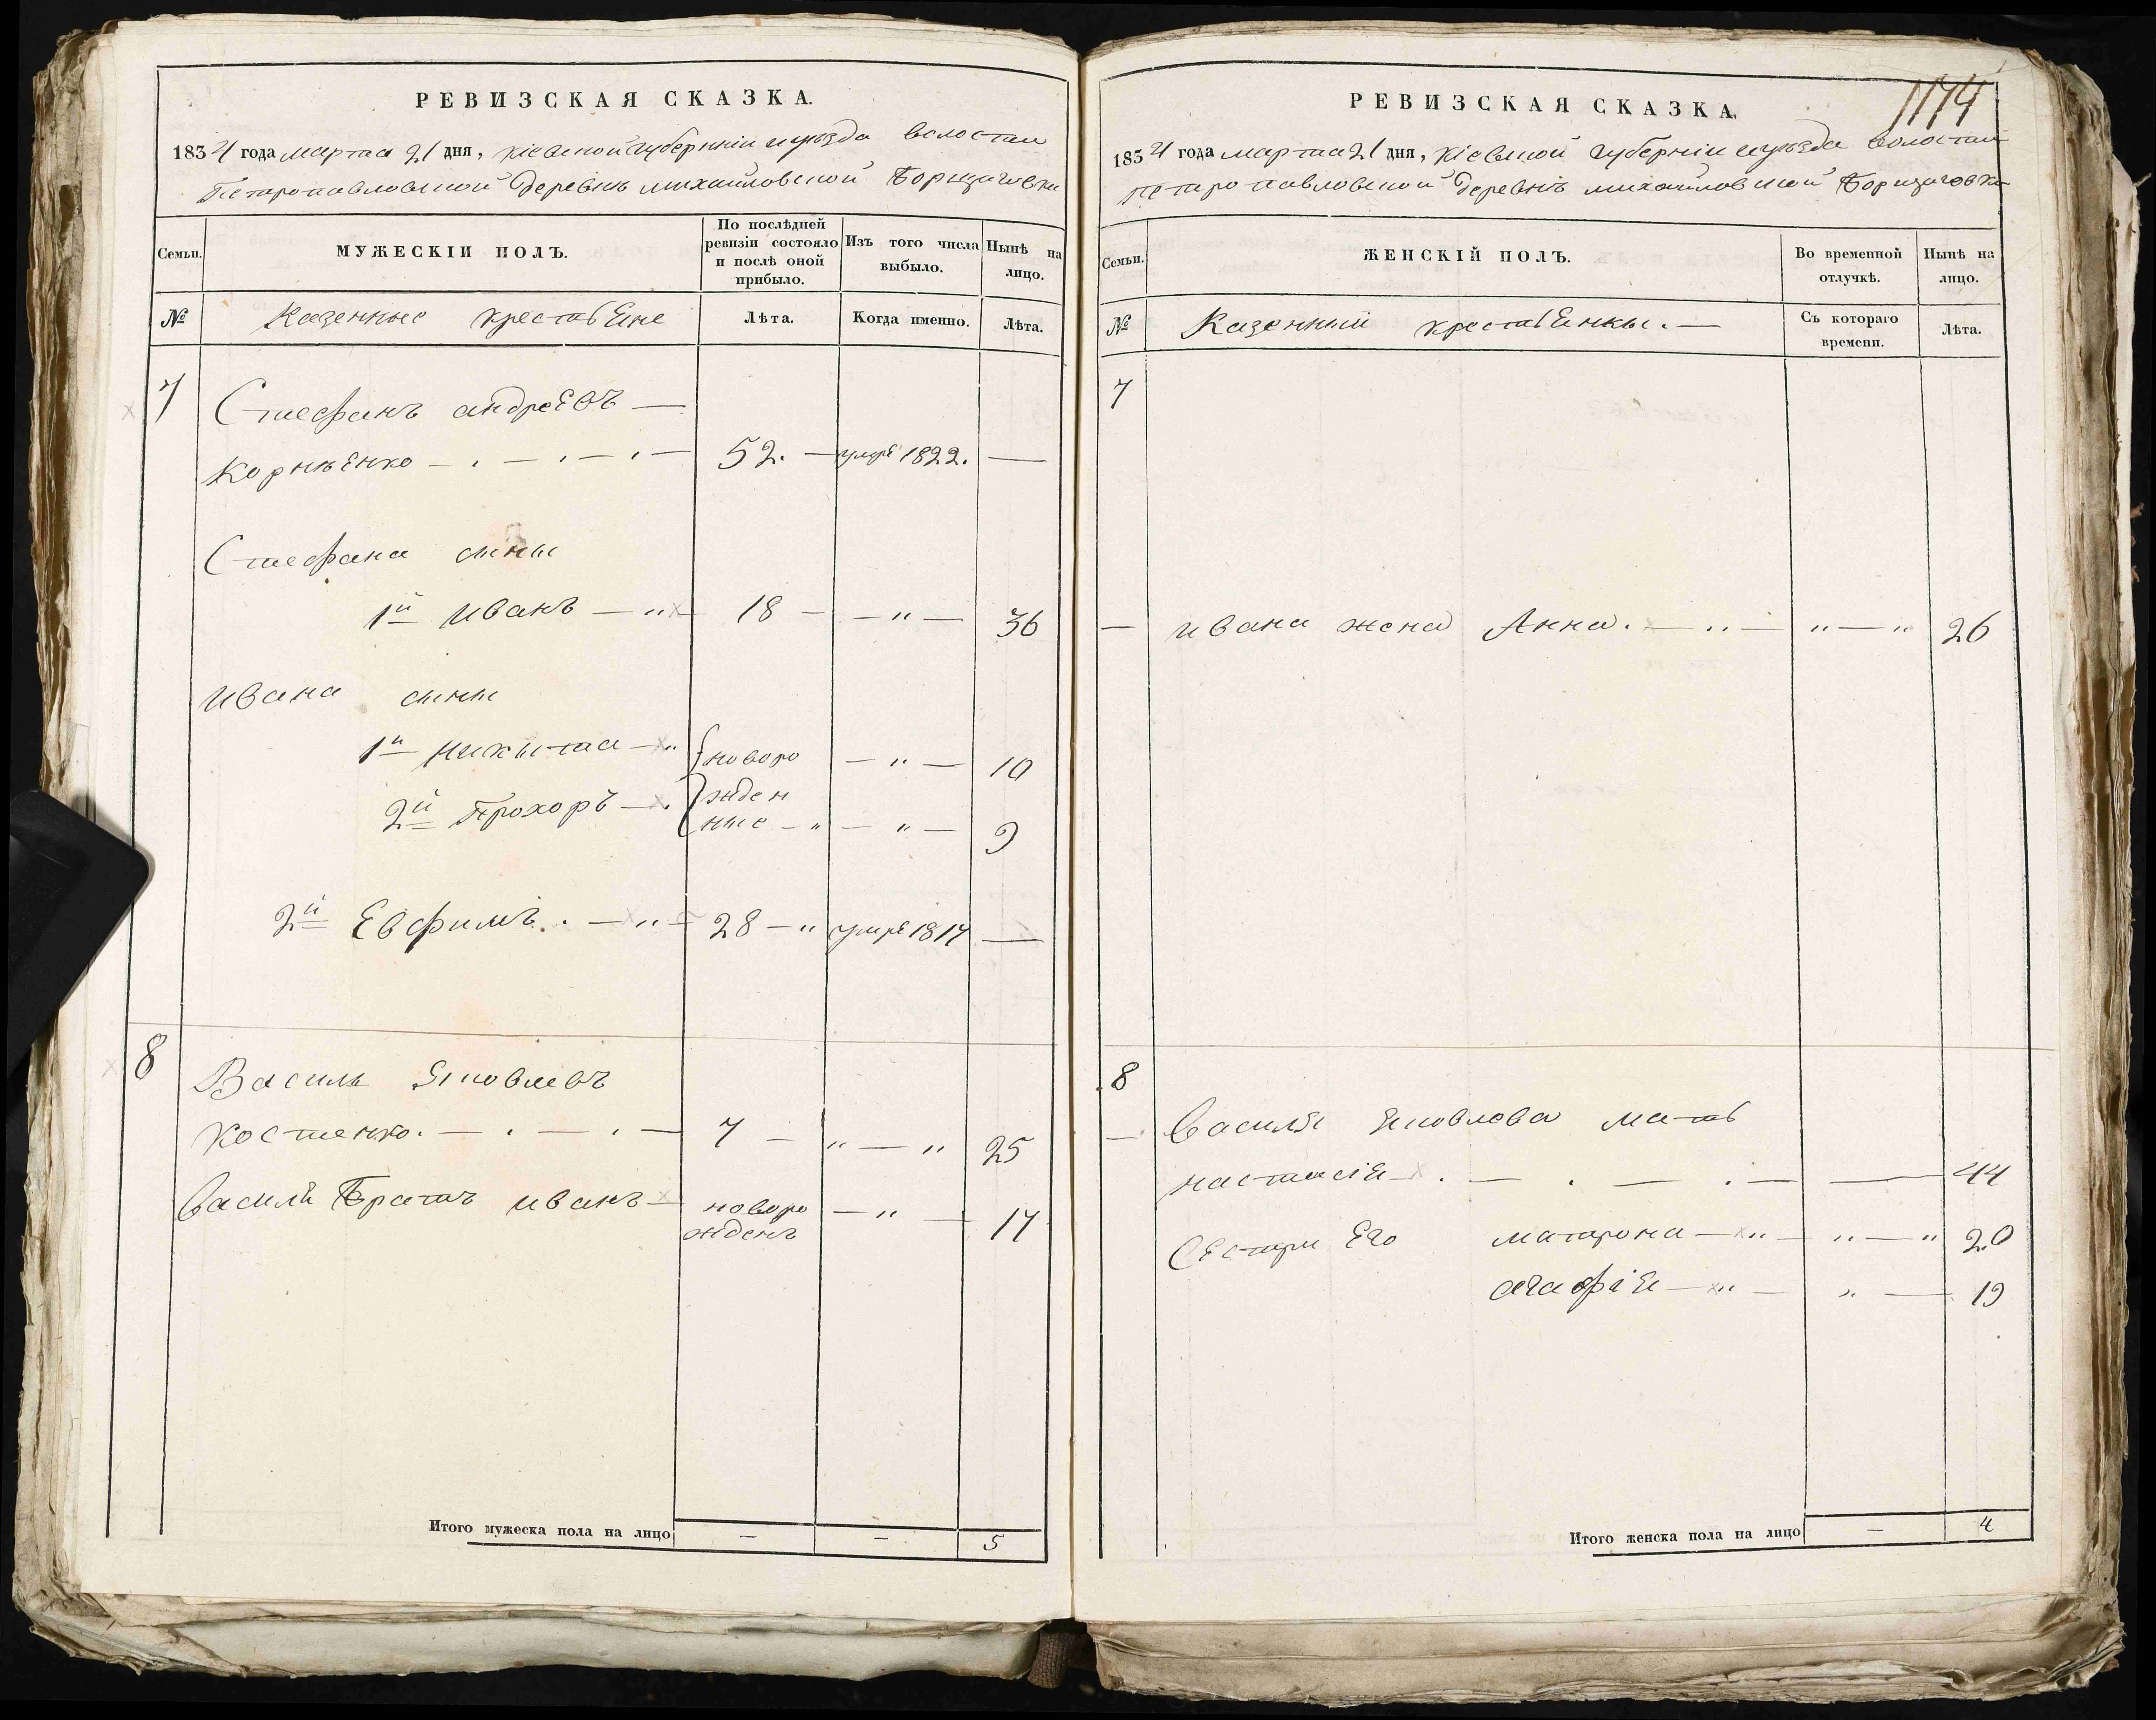 РЕВИЗСКАЯ СКАЗКА.
1834 года марта 21 дня, кіевской губерніи и уезда волости
Петропавловской деревнѣ михайловской Борщаговки
Семьи.
МУЖЕСКІЙ ПОЛЪ.
По послѣдней ревизіи состояло и послѣ оной прибыло.
Изъ того числа выбыло.
Нынѣ на лицо.
№
Казенные крестьЕне
Лѣта.
Когда именно.
Лѣта.
7 Стефанъ андреЕвъ —
КорнѣЕнко — . — . — . — 52. — умре 1822. —
Стефана сины
1й иванъ — „ — 18 — — „ — 36
ивана сины
1й никыта — „ новоро — „ — 10
2й Прохоръ — . жден
ные — „ — „ — 9
2й Евфимъ . — „ — 28 — „ умре 1817 —
8 Василь Яковлевъ
костенко. — . — . — 7 — „ — „ 25
василя Братъ иванъ — новоро — „ — 17
жденъ
Итого мужеска пола на лицо — — 5
1174
РЕВИЗСКАЯ СКАЗКА.
1834 года марта 21 дня, кіевской губерніи и уезда волости
петропавловской деревнѣ михайловской Борщаговки
Семьи.
ЖЕНСКІЙ ПОЛЪ.
Во временной отлучкѣ.
Нынѣ на лицо.
№
Казенний крестьЕнкы. —
Съ котораго времени.
Лѣта.
7
— ивана жена Анна. — „ — „ — „ 26
8
— василя Яковлова мать
настасія — . — . — . — — 44
СЕстри Его матрона — „ — „ — „ 20
агафія — „ — „ — 19
Итого женска пола на лицо — 4